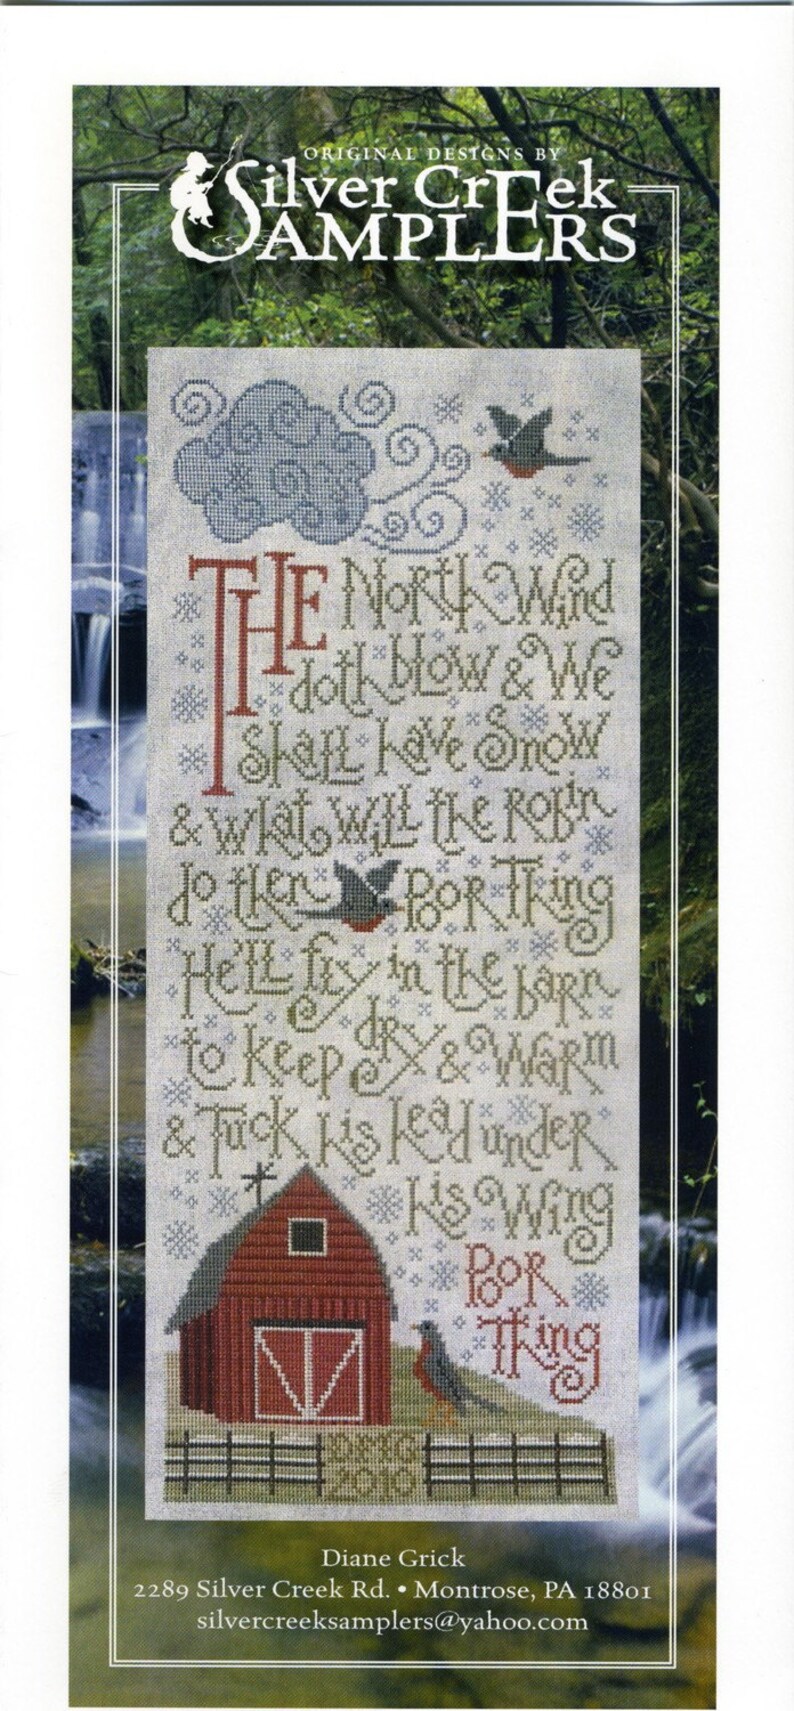 ORIGINAL DESIGNS BY
Silver CrEek
SAMPLERS
THE North Wind
doth blow & We
shall have Snow
& what will the robin
do then Poor Thing
He'll fly in the barn
to keep dry & Warm
& Tuck his head under
his Wing
Poor
Thing
2010
Diane Grick
2289 Silver Creek Rd. • Montrose, PA 18801
silvercreeksamplers@yahoo.com